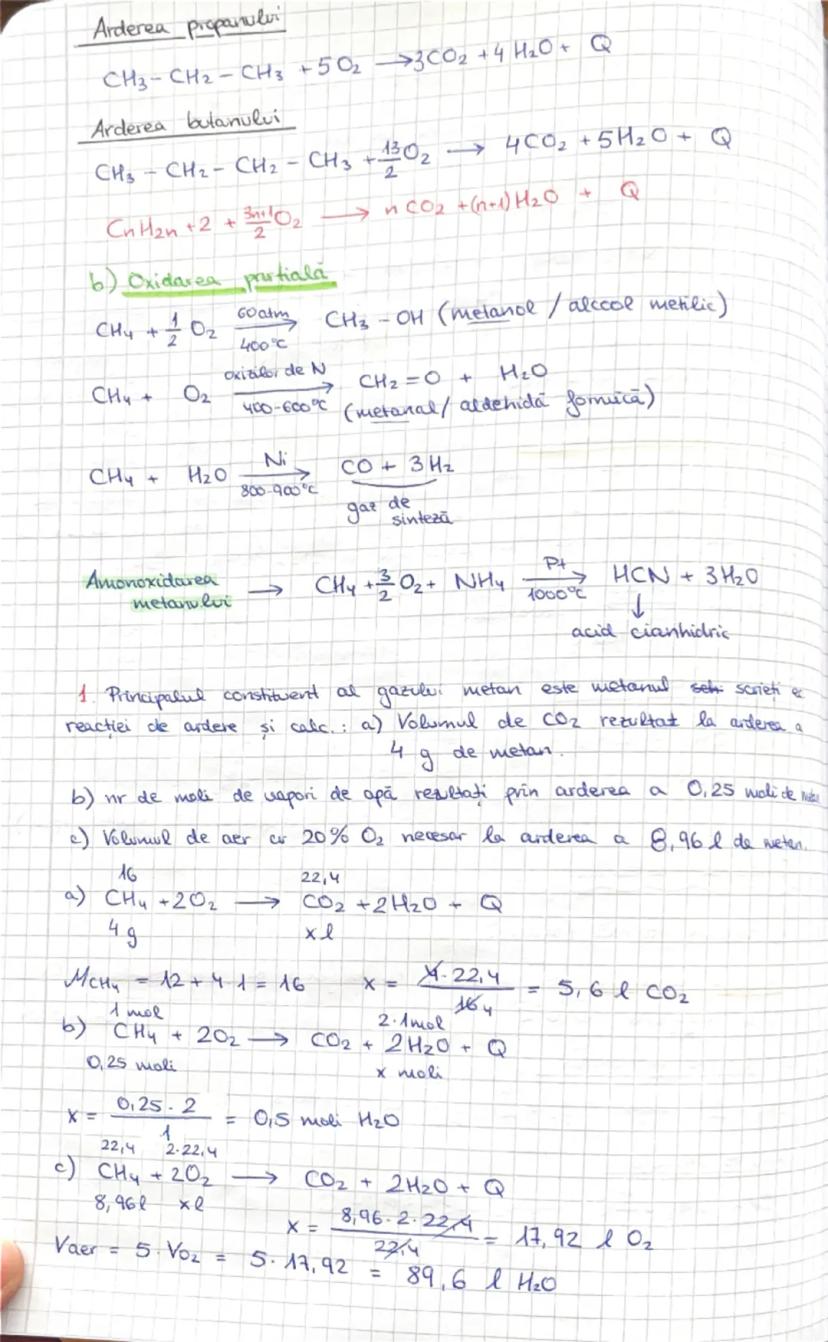 Arderea propanului
CH3 - CH2 - CH3 + 5O2 → 3CO2 + 4H2O + Q
Arderea butanului
CH3 - CH2 - CH2 - CH3 + 13/2 O2 → 4CO2 + 5H2O + Q
CnH2n+2 + 3n+1/2 O2 → nCO2 + (n+1)H2O + Q
b) Oxidarea parțială
CH4 + 1/2 O2 60atm → 400°C CH3 - OH (metanol / alcool metilic)
CH4 + O2 oxizilor de N → 400-600°C CH2=O + H2O
(metanal / aldehidă formică)
CH4 + H2O Ni → 800-900°C CO + 3H2
gaz de
sinteză
Amonoxidarea
metanului → CH4 + 3/2 O2 + NH4 Pt → 1000°C HCN + 3H2O
↓
acid cianhidric
1. Principalul constituent al gazului metan este metanul scrieți e
reacției de ardere și calc.: a) Volumul de CO2 rezultat la arderea a
4 g de metan.
b) nr de moli de vapori de apă rezultați prin arderea a 0,25 moli de
c) Volumul de aer cu 20% O2 necesar la arderea a 8,96 l de metan.
16 22,4
a) CH4 + 2O2 → CO2 + 2H2O + Q
4g x l
MCH4 = 12 + 4·1 = 16 x = 4·22,4/16 4 = 5,6 l CO2
1 mol 2·1mol
b) CH4 + 2O2 → CO2 + 2H2O + Q
0,25 moli x moli
x = 0,25·2/1 = 0,5 moli H2O
22,4 2·22,4
c) CH4 + 2O2 → CO2 + 2H2O + Q
8,96l x l
x = 8,96·2·22,4/22,4 = 17,92 l O2
Vaer = 5·VO2 = 5·17,92 = 89,6 l H2O